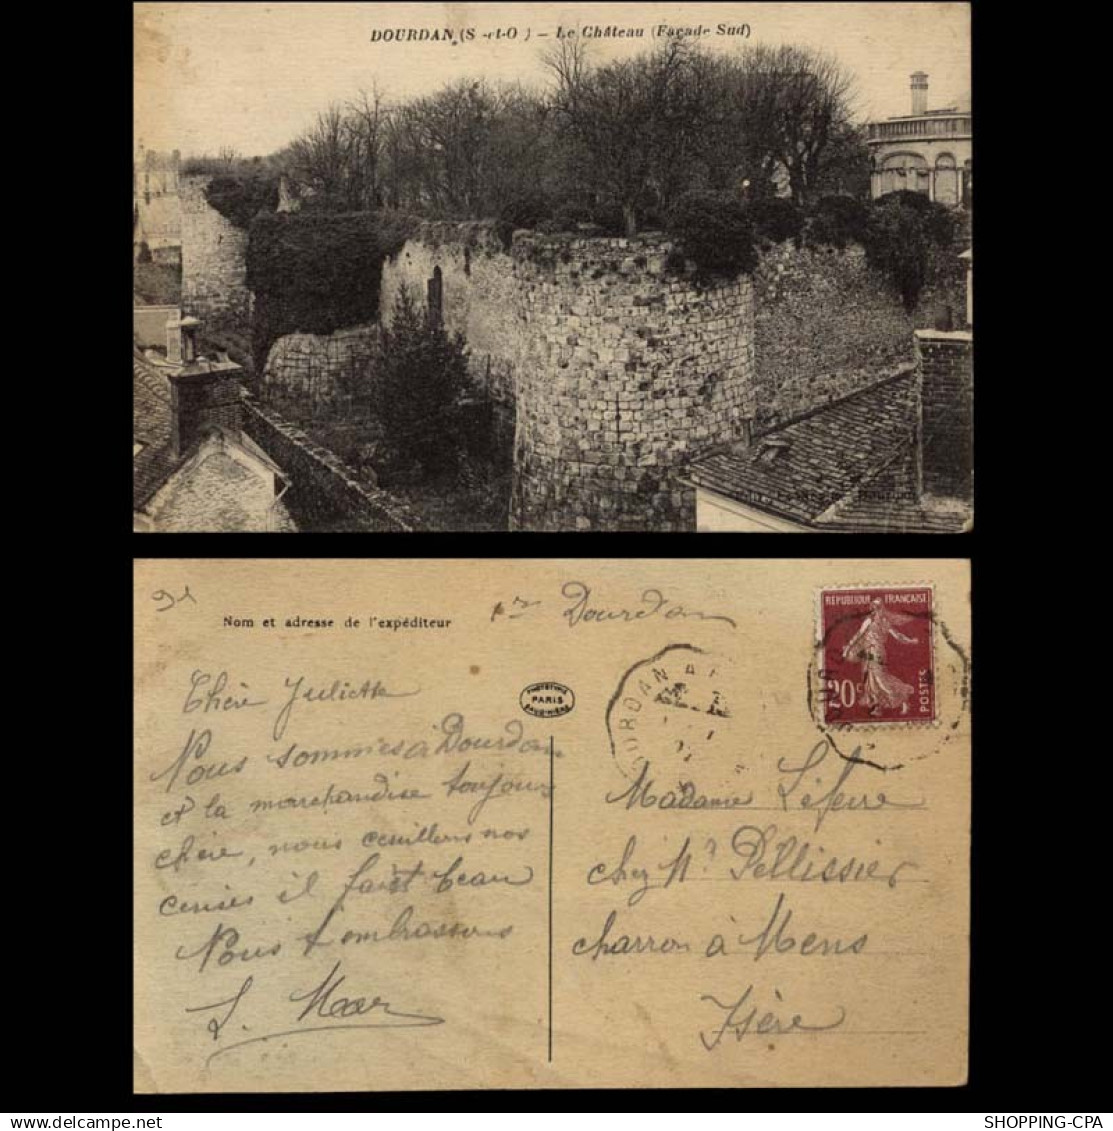 DOURDAN (S.-et-O) — Le Château (Façade Sud)
91
Nom et adresse de l'expéditeur
Dourdan
RÉPUBLIQUE FRANÇAISE
20c
POSTES
PHOTOTYPIE
PARIS
DOURDAN
Chère Juliette
Nous sommes à Dourdan
et la marchandise toujours
chère, nous cueillons nos
cerises il fait beau
Nous t embrassons
Madame Lefeuvre
chez Mr Pellissier
charron à Mens
Isère
SHOPPING-CPA